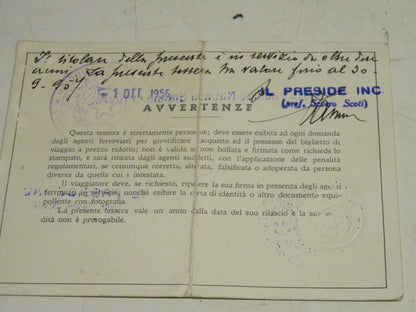 Il titolare della presente è in servizio da oltre due
anni. La presente tessera ha valore fino al 30-
9-957
1 OTT. 1956
IL PRESIDE INC.
(prof. Scoti)
AVVERTENZE
Questa tessera è strettamente personale; deve essere esibita ad ogni domanda
degli agenti ferroviari per giustificare l'acquisto ed il possesso del biglietto di
viaggio a prezzo ridotto; non è valida se non bollata e firmata come richiede lo
stampato, e sarà ritirata dagli agenti suddetti, con l'applicazione delle penalità
regolamentari, se comunque corretta, alterata, falsificata o adoperata da persona
diversa da quella cui è intestata.
Il viaggiatore deve, se richiesto, ripetere la sua firma in presenza degli agenti
ferroviari in servizio, nonchè esibire la carta di identità o altro documento equi-
pollente con fotografia.
La presente tessera vale un anno dalla data del suo rilascio e la sua vali-
dità non è prorogabile.